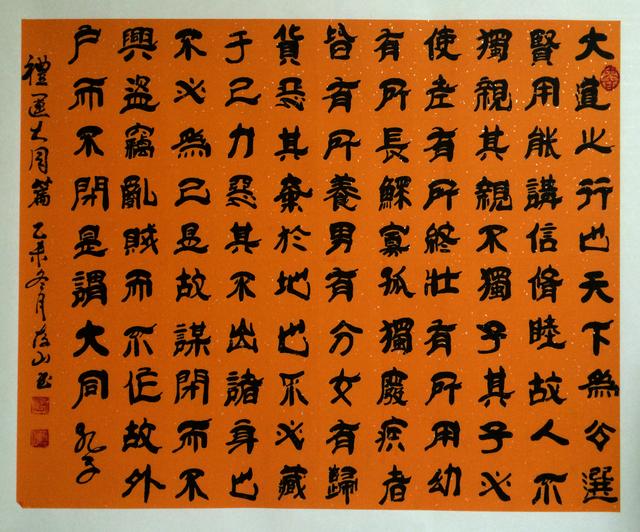 大道之行也天下為公選
賢用能講信脩睦故人不
獨親其親不獨子其子必
使老有所終壯有所用幼
有所長鰥寡孤獨廢疾者
皆有所養男有分女有歸
貨惡其棄於地也不必藏
于己力惡其不出諸身也
不必為己是故謀閉而不
興盜竊亂賊而不作故外
戶而不閉是謂大同 孔子
禮運大同篇 乙未冬月